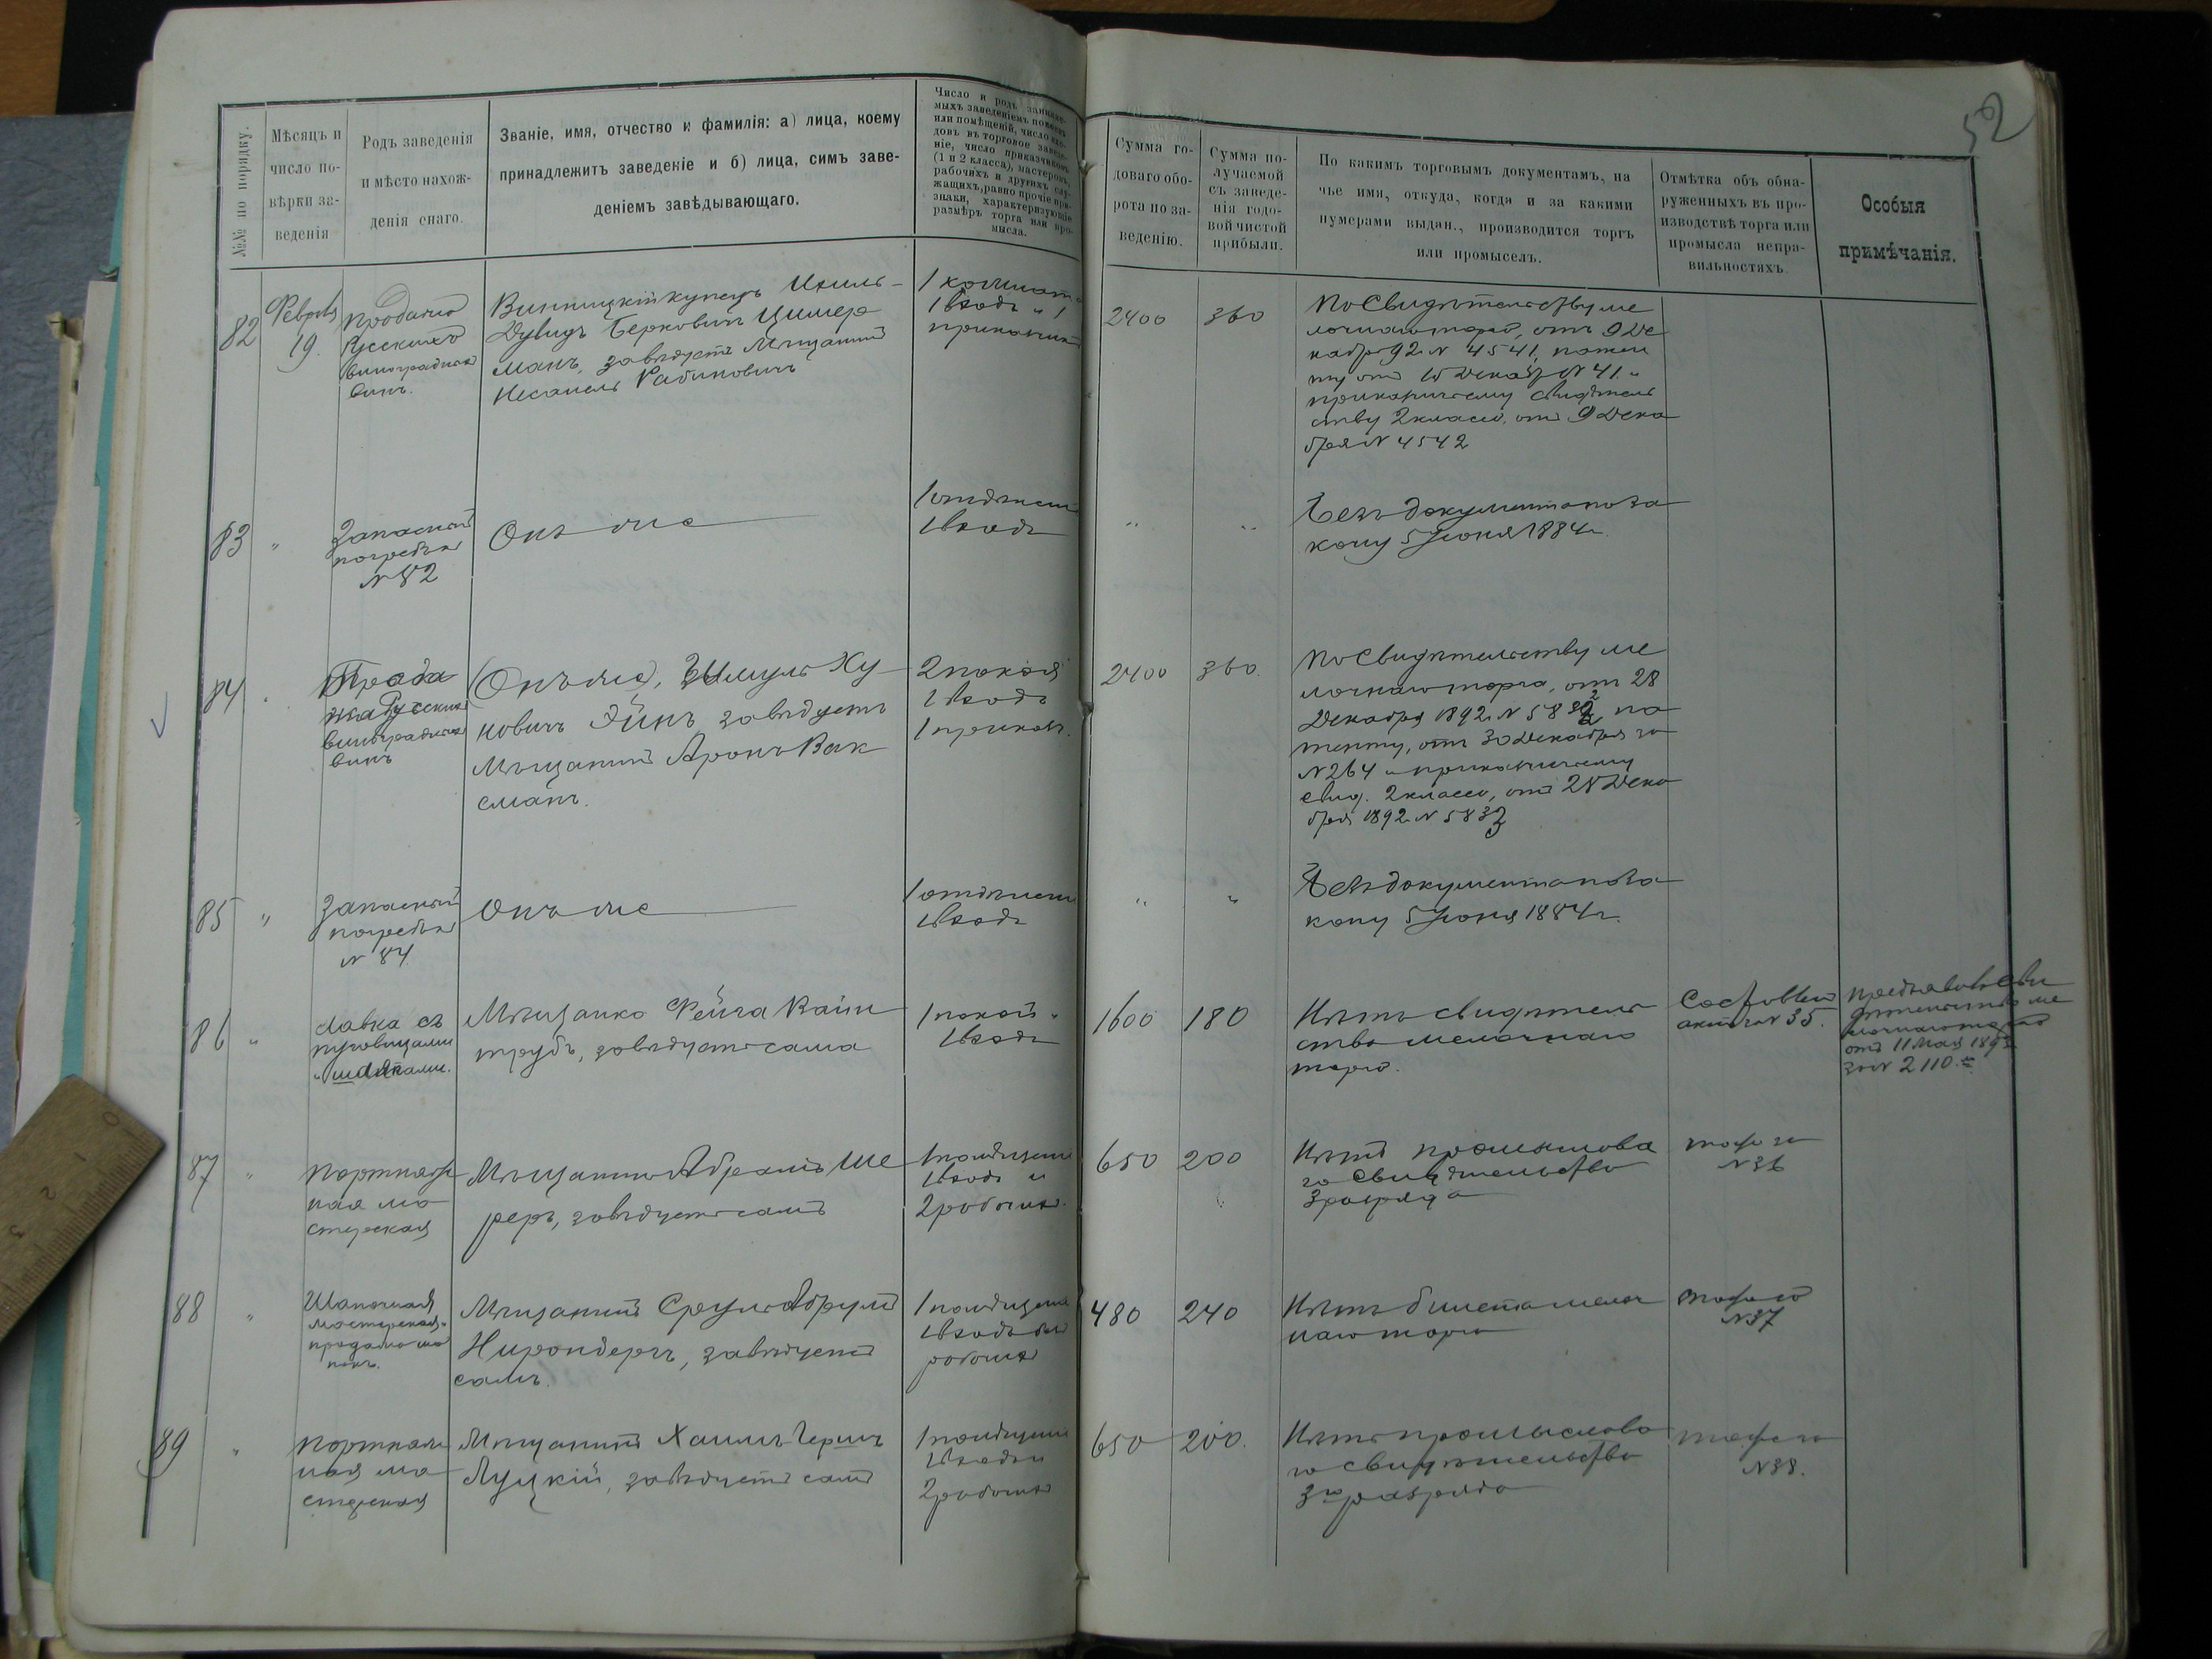 52
№№ по порядку.
Мѣсяцъ и
число по-
вѣрки за-
веденія
Родъ заведенія
и мѣсто нахож-
денія онаго.
Званіе, имя, отчество и фамилія: а) лица, коему
принадлежитъ заведеніе и б) лица, симъ заве-
деніемъ завѣдывающаго.
Число и родъ занимае-
мыхъ заведеніемъ
или помѣщеній, число вхо-
довъ въ торговое заведе-
ніе, число приказчиковъ
(1 и 2 класса), мастеровъ,
рабочихъ и другихъ слу-
жащихъ, равно прочіе при-
знаки, характеризующіе
размѣръ торга или про-
мысла.
Сумма го-
доваго обо-
рота по за-
веденію.
Сумма по-
лучаемой
съ заведе-
нія годо-
вой чистой
прибыли.
По какимъ торговымъ документамъ, на
чье имя, откуда, когда и за какими
нумерами выдан., производится торгъ
или промыселъ.
Отмѣтка объ обна-
руженныхъ въ про-
изводствѣ торга или
промысла непра-
вильностяхъ.
Особыя
примѣчанія.
82
19.
Продажа
Русскихъ
виноградныхъ
винъ.
Винницкій купецъ
Дувидъ Берковичъ Цимер
манъ, завѣдуетъ Мѣщанинъ
Рабиновичъ
1 комната
1 входъ и 1
приказчикъ
2400
360
По Свидѣтельству ме
лочнаго торга, отъ 9 Де
кабря 92 г. N 4541, патен
ту отъ 10 Декаб. N 41 и
приказчичьему свидѣтель
ству 2 класса, отъ 9 Дека
бря N 4542
83
"
Запасный
погребъ
N 82
Онъ же
1 отдѣленіе
1 входъ
"
"
Безъ документа по за
кону 5 Іюня 1884 г.
84
Прода
жа Русскихъ
виноградныхъ
винъ
(Онъ же), Шмуль Ху
новичъ Эйнъ завѣдуетъ
Мѣщанинъ Аронъ Вак
сманъ.
2 покоя
1 входъ
1 приказч.
2400
360.
По Свидѣтельству ме
лочнаго торга, отъ 28
Декабря 1892 г. N 5832 па
тенту, отъ 30 Декабря за
N 264 и приказчичьему
свид. 2 класса, отъ 28 Дека
бря 1892 г. N 5833
85
"
Запасный
погребъ
N 84.
Онъ же
1 отдѣленіе
1 входъ
"
"
Безъ документа по за
кону 5 Іюня 1884 г.
86
"
Лавка съ
пуговицами
и шапками.
Мѣщанка Фейга Вайн
трубъ, завѣдуетъ сама
1 покой и
1 входъ
1600
180
Нѣтъ свидѣтель
ства мелочнаго
торга.
Составленъ
актъ за N 35.
Предъявлено Сви
дѣтельство ме
лочнаго торга
отъ 11 Мая 1893
за N 2110.
87
"
Портняж
ная ма
стерская
Мѣщанинъ Абрамъ Ше
реръ, завѣдуетъ самъ
1 помѣщеніе
1 входъ и
2 рабочихъ.
650
200
Нѣтъ промыслова
го Свидѣтельства
3 разряда
тоже за
N 36
88
"
Шапочная
мастерская и
продажа ша
покъ.
Мѣщанинъ Сруль Абрумъ
завѣдуетъ
самъ.
1 помѣщеніе
1 входъ
480
240
Нѣтъ билета мелоч
наго торга
тоже за
N 37
89
"
Портняж
ная ма
стерская
Мѣщанинъ Хаимъ Гершъ
Луцкій, завѣдуетъ самъ
1 помѣщеніе
1 входъ и
2 рабочихъ
650
200.
Нѣтъ промыслова
го Свидѣтельства
3го разряда
тоже за
N 38.